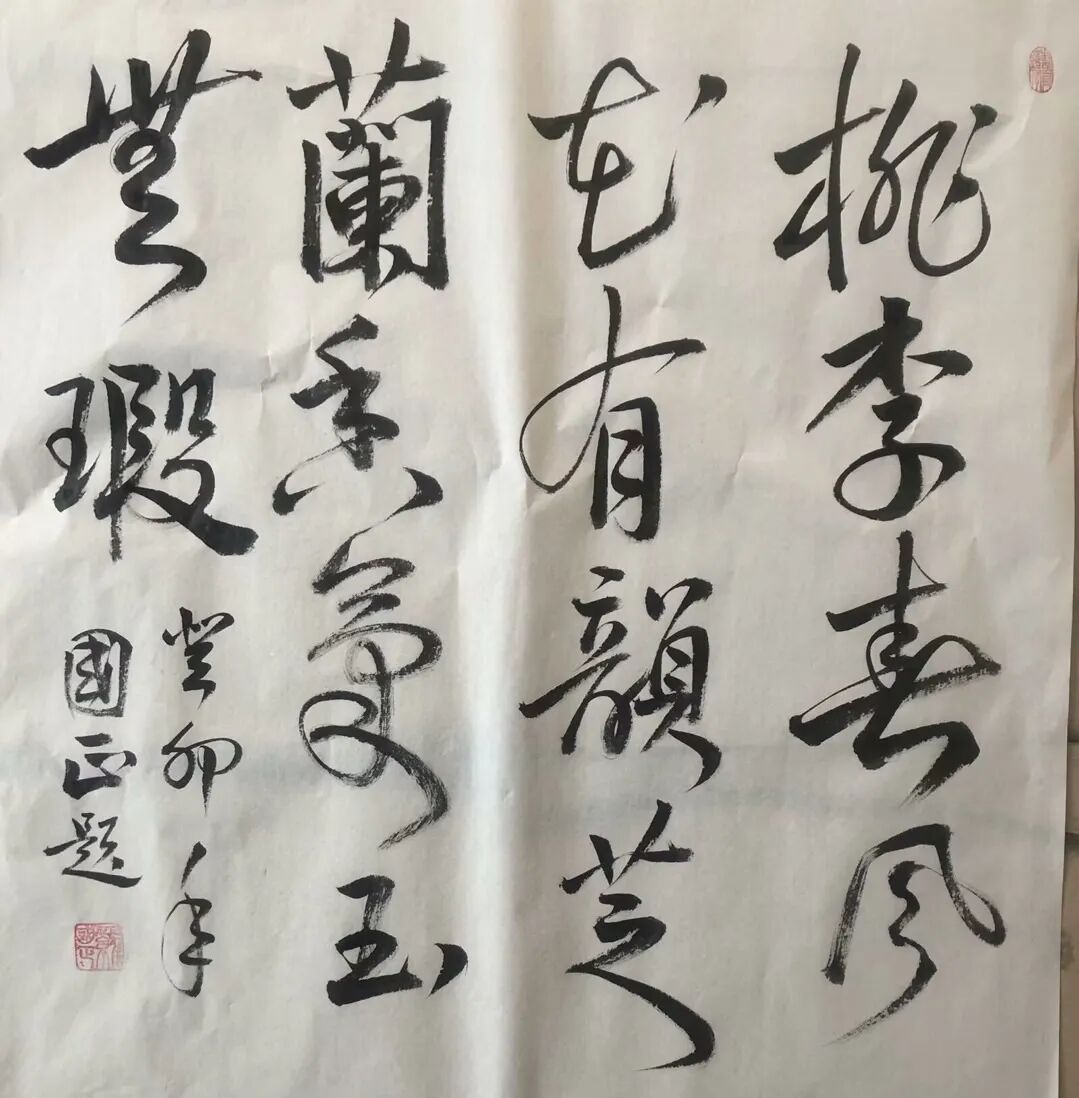 桃李春风
花有韻芝
蘭香玉
無瑕
癸卯年
國正题